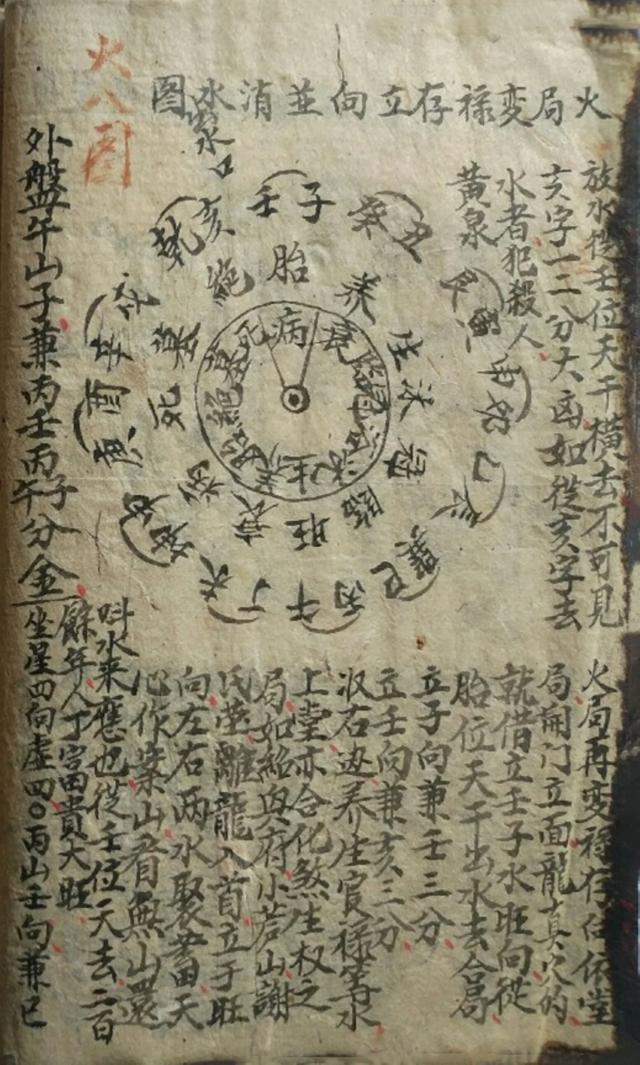 火局变禄存立向並消水图
出水口
放水從壬位天干橫去不可見
亥字一二分大凶如從亥字去
水者犯殺人
黄泉
火八图
壬子
癸丑
巽巳
丙午
丁
乾亥
胎
养
生
沐
冠
臨
旺
衰
病
死
绝
病
衰
旺
生
养
绝
火局再变禄存任依堂
局開门立面龍真穴的
就借立壬子水旺向從
胎位天干出水去合局
立子向兼壬三分
立壬向兼亥三分
收右边养生官禄等水
上堂亦合化煞生权之
局如紹興府小芦山謝
氏塋離龍入首立子旺
向左右两水聚蓄天
心作案山者無山還
叫水来應也從壬位天去二百
餘年人丁富貴大旺
外盤午山子兼丙壬丙午子分金
坐星四向虚四〇丙山壬向兼巳